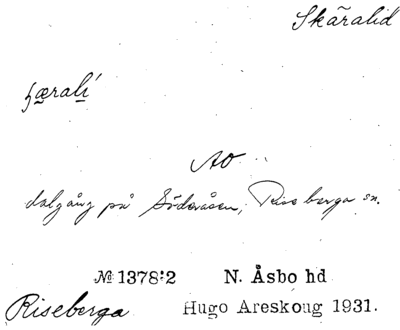 Skäralid
ɧæralí
AO
dalgång på Söderåsen, Riseberga sn.
№ 1378:2 N. Åsbo hd
Riseberga Hugo Areskoug 1931.